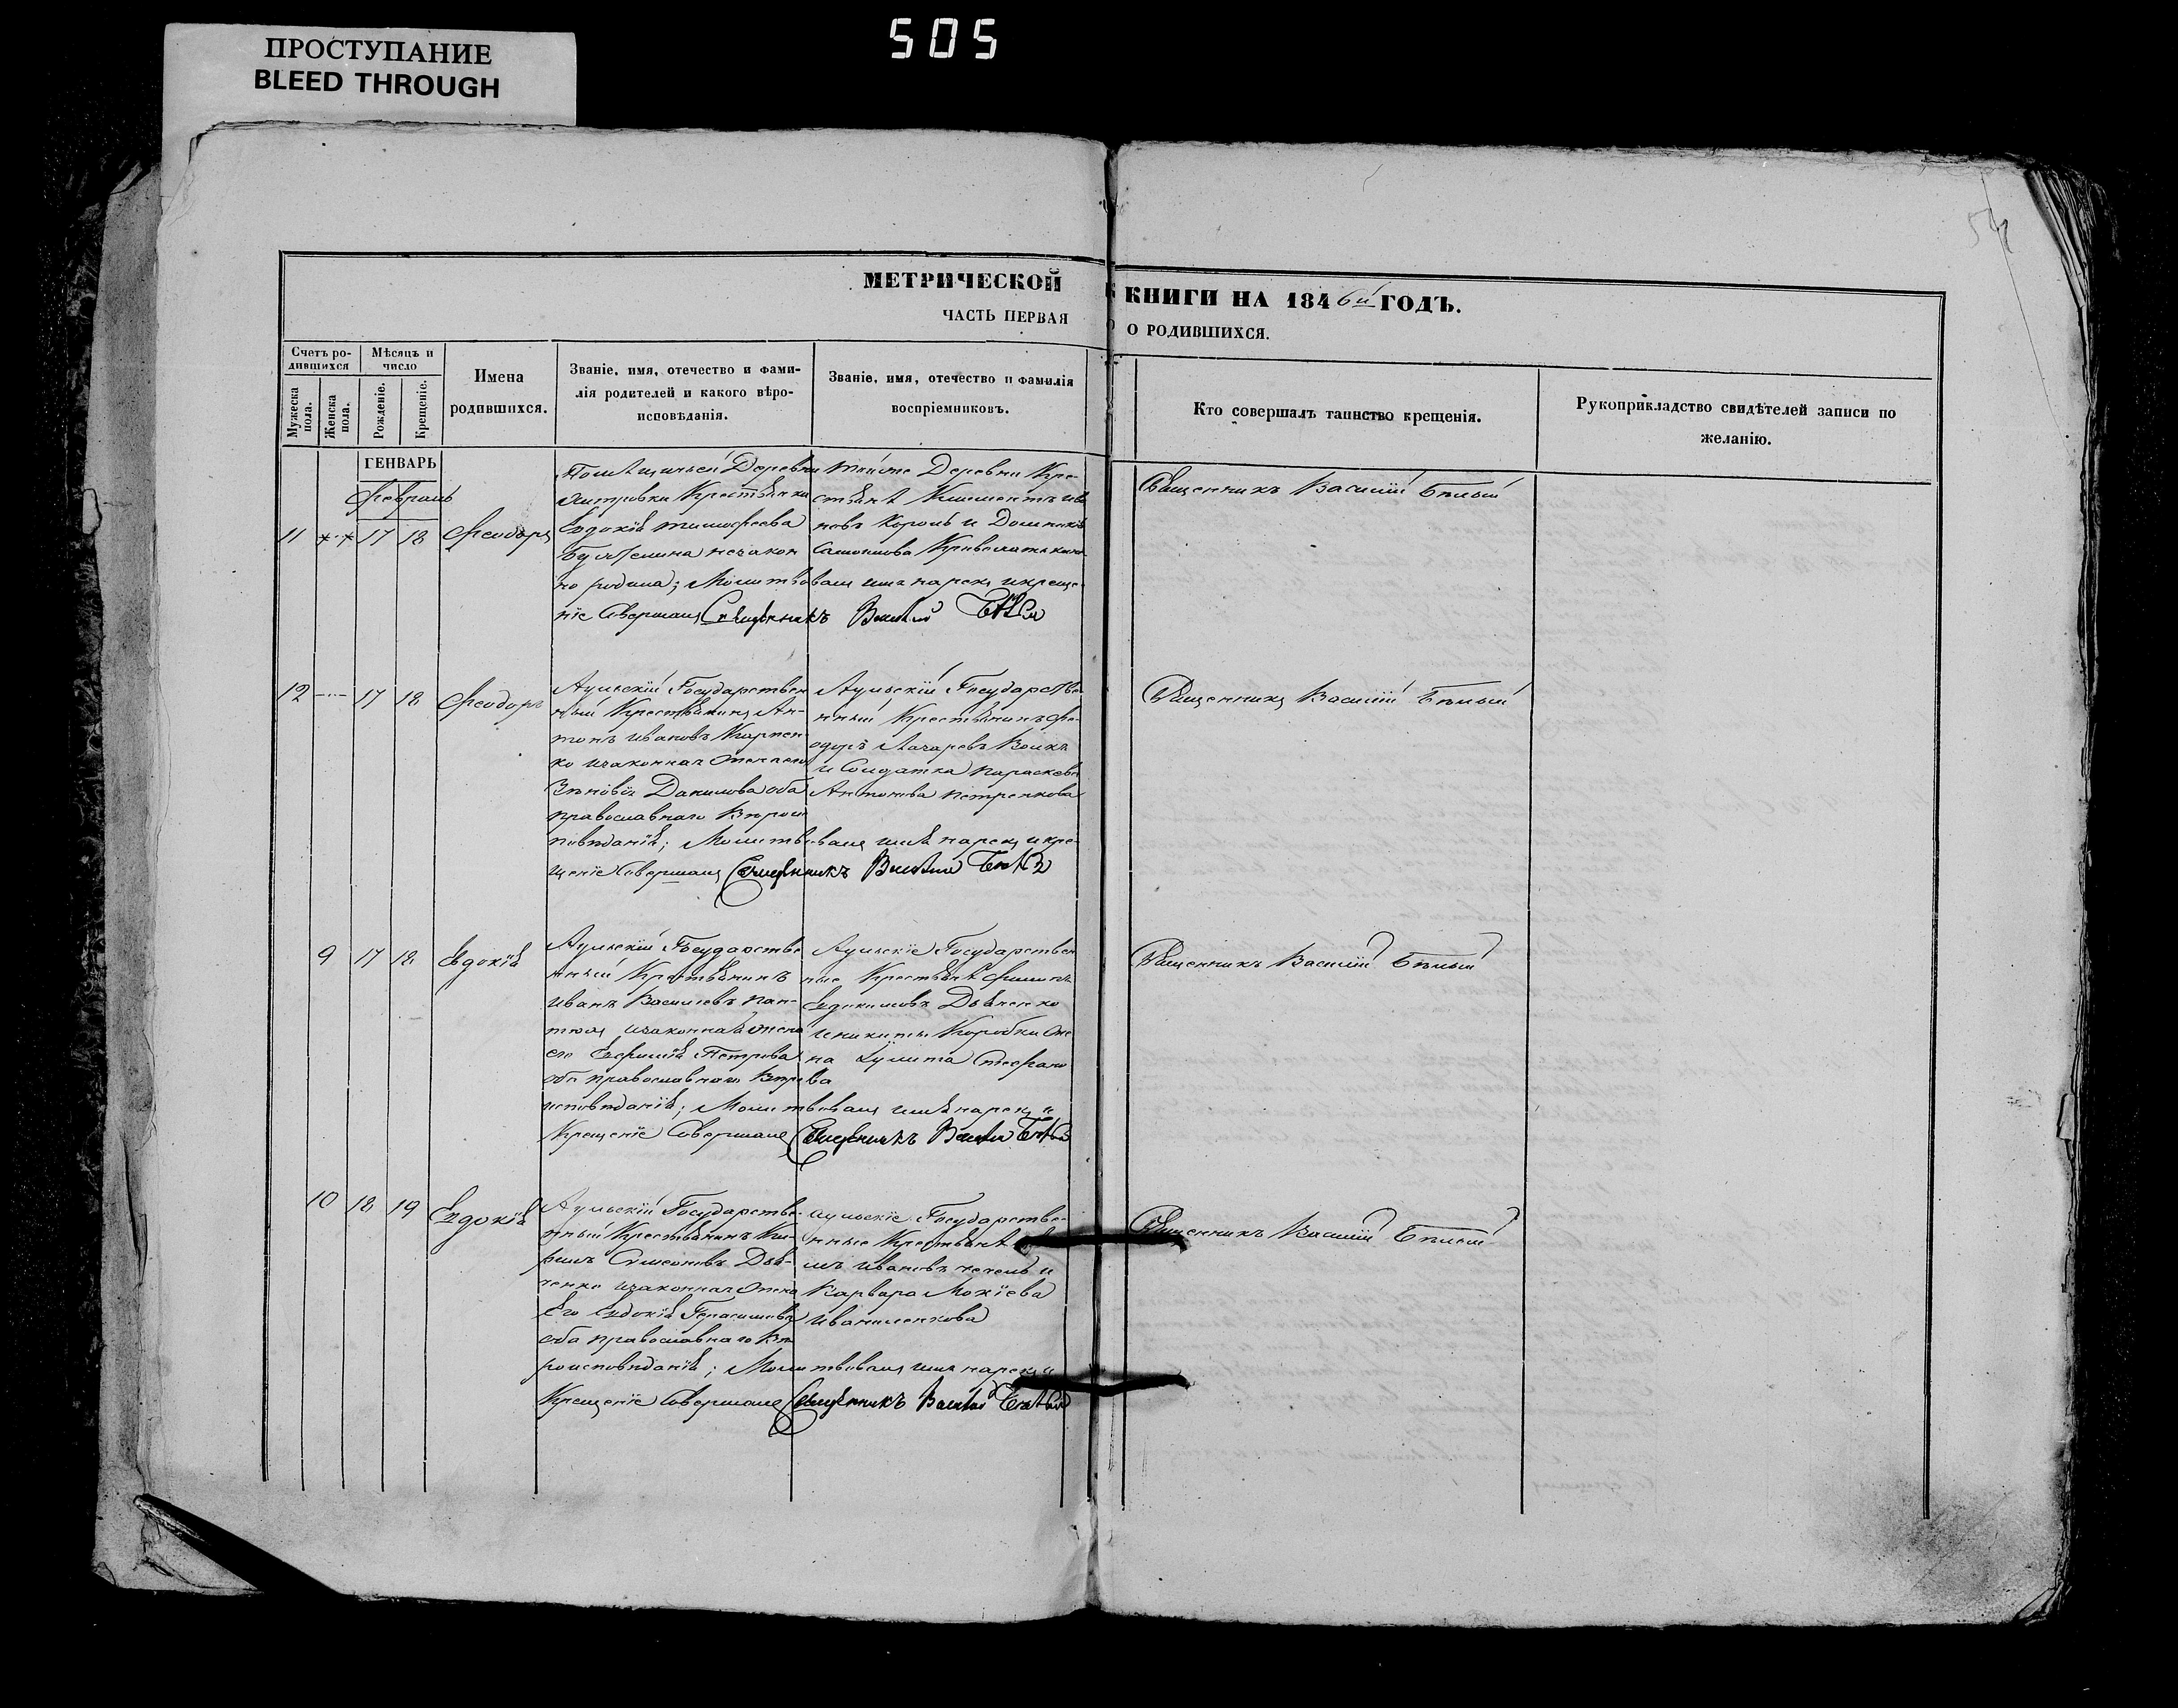 505
ПРОСТУПАНИЕ
BLEED THROUGH
МЕТРИЧЕСКОЙ КНИГИ НА 1846й ГОДЪ.
ЧАСТЬ ПЕРВАЯ О РОДИВШИХСЯ.
Счетъ родившихся
Мужеска пола.
Женска пола.
Мѣсяцъ и число
Рожденіе.
Крещеніе.
Имена родившихся.
Званіе, имя, отечество и фами-
лія родителей и какого вѣро-
исповѣданія.
Званіе, имя, отечество и фамилія
воспріемниковъ.
Кто совершалъ таинство крещенія.
Рукоприкладство свидѣтелей записи по
желанію.
ГЕНВАРЬ
Февраль
11 17 18 Феодоръ
Деревни
Крестьянки
Евдокія Тимофеева
незакон
но родила; Молитвовалъ имя нарекъ и креще-
ніе Совершалъ Священникъ Василій
Деревни Кре-
стьяне Климентъ Ива
новъ Король и
Священникъ Василій Бѣлый
12 17 18 Феодоръ
Аульскій Государствен
ный Крестьянинъ Ан-
тонъ Ивановъ Карпен
ко изаконная Жена его
Зѣновія Данилова оба
православнаго Вѣрои
повѣданія; Молитвовалъ имя нарекъ и кре-
щеніе Совершалъ Священникъ Василій
Аульскій Государстве
нный Крестьянинъ Фе-
одоръ Лазаревъ Вовкъ
и Солдатка Параскева
Антонова Петренкова
Священникъ Василій Бѣлый
9 17 18 Евдокія
Аульскій Государстве
нный Крестьянинъ
Иванъ Василіевъ Пан-
изаконная Жена
его Евфимія Петрова
оба православнаго Вѣро
исповѣданія; Молитвовалъ имя нарекъ и
Крещеніе Совершалъ Священникъ Василій
Аульскіе Государствен
ные Крестьяне Филипъ
Евдокимовъ Дьяченко
и Никиты Коробки Же
на Улита Стефано
ва
Священникъ Василій Бѣлый
10 18 19 Евдокія
Аульскій Государстве-
нный Крестьянинъ Ки-
рилъ Симеоновъ Дья-
ченко изаконная Жена
Его Евдокія Герасимова
оба православнаго Вѣ
роисповѣданія; Молитвовалъ имя нарекъ и
Крещеніе Совершалъ Священникъ Василій
Аульскіе Государстве-
нные Крестьяне
Ивановъ и
Варвара Мокіева
Священникъ Василій Бѣлый